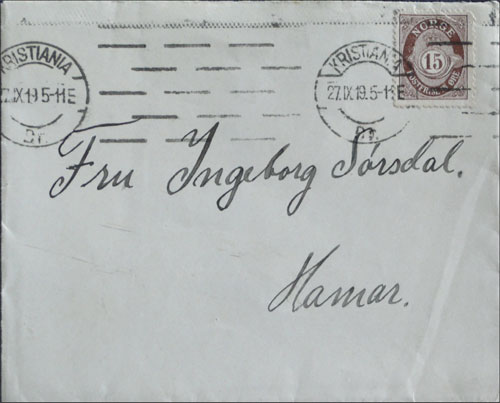 KRISTIANIA
27.IX.19.5-11E
Br.
KRISTIANIA
27.IX.19.5-11E
Br.
NORGE
15
POSTFRIM. ØRE
Fru Ingeborg Sørsdal.
Hamar.